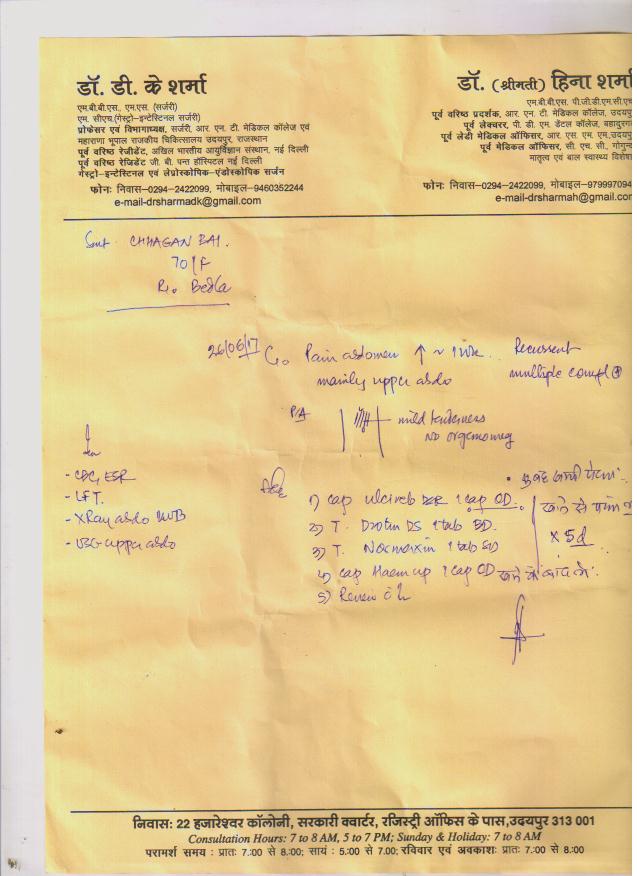 डॉ. डी. के शर्मा
एम.बी.बी.एस., एम.एस. (सर्जरी)
एम. सीएच.(गेस्ट्रो-इन्टेस्टिनल सर्जरी)
प्रोफेसर एवं विभागाध्यक्ष, सर्जरी, आर. एन. टी. मेडिकल कॉलेज एवं
महाराणा भूपाल राजकीय चिकित्सालय उदयपुर, राजस्थान
पूर्व वरिष्ठ रेजीडेंट, अखिल भारतीय आयुर्विज्ञान संस्थान, नई दिल्ली
पूर्व वरिष्ठ रेजिडेंट जी. बी. पन्त हॉस्पिटल नई दिल्ली
गेस्ट्रो-इन्टेस्टिनल एवं लेप्रोस्कोपिक-एंडोस्कोपिक सर्जन
फोनः निवास-0294-2422099, मोबाइल-9460352244
e-mail-drsharmadk@gmail.com
डॉ. (श्रीमती) हिना शर्मा
एम.बी.बी.एस. पी.जी.डी.एम.सी.एच
पूर्व वरिष्ठ प्रदर्शक, आर. एन. टी. मेडिकल कॉलेज, उदयपु
पूर्व लेक्चरर, पी. डी. एम. डेंटल कॉलेज, बहादुरग
पूर्व लेडी मेडिकल ऑफिसर, आर. एस. एम. एम.उदयपु
पूर्व मेडिकल ऑफिसर, सी. एच. सी., गोगुन्द
मातृत्व एवं बाल स्वास्थ्य विशेष
फोनः निवास-0294-2422099, मोबाइल-979997094
e-mail-drsharmah@gmail.co
Smt. CHHAGAN BAI.
70/F
R/o Bedla
26/06/17 C/o Pain abdomen ↑ ~ 1 wk. Recurrent
mainly upper abdo multiple
P/A mild tenderness
NO organomeg
- CBC, ESR
- LFT.
- XRay abdo KUB
- USG upper abdo
1) Cap ulcireb 1 cap OD. खाने से पहले
2) T. Drotin DS 1 tab BD.
3) T. Normaxin 1 tab BD × 5d
4) Cap Haem up 1 cap OD खाने के बाद में.
5) Review c̄
निवास: 22 हजारेश्वर कॉलोनी, सरकारी क्वार्टर, रजिस्ट्री ऑफिस के पास,उदयपुर 313 001
Consultation Hours: 7 to 8 AM, 5 to 7 PM; Sunday & Holiday: 7 to 8 AM
परामर्श समय : प्रातः 7.00 से 8.00; सायं : 5.00 से 7.00; रविवार एवं अवकाशः प्रातः 7.00 से 8.00